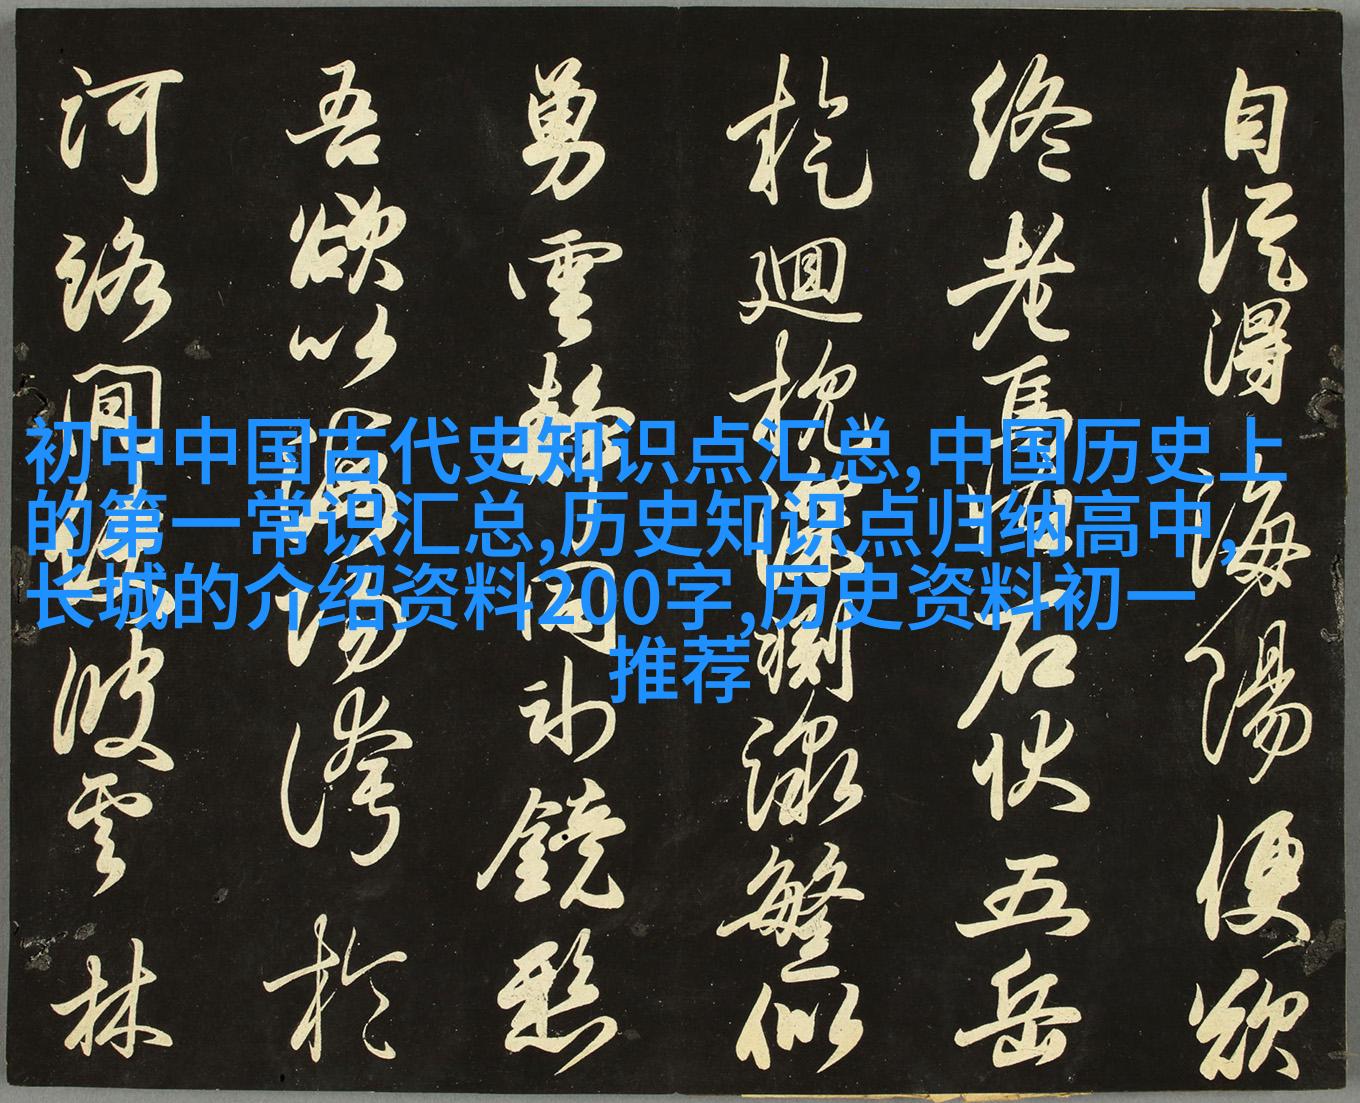 初中中国古代史知识点汇总,中国历史上
的第一常识汇总,历史知识点归纳高中,
长城的介绍资料200字,历史资料初一
推荐
自從得海陽便欲
終老焉石五岳
迴枕深繁似
雲靜同鏡愁
吾欲以誇於
河洛間波雲林